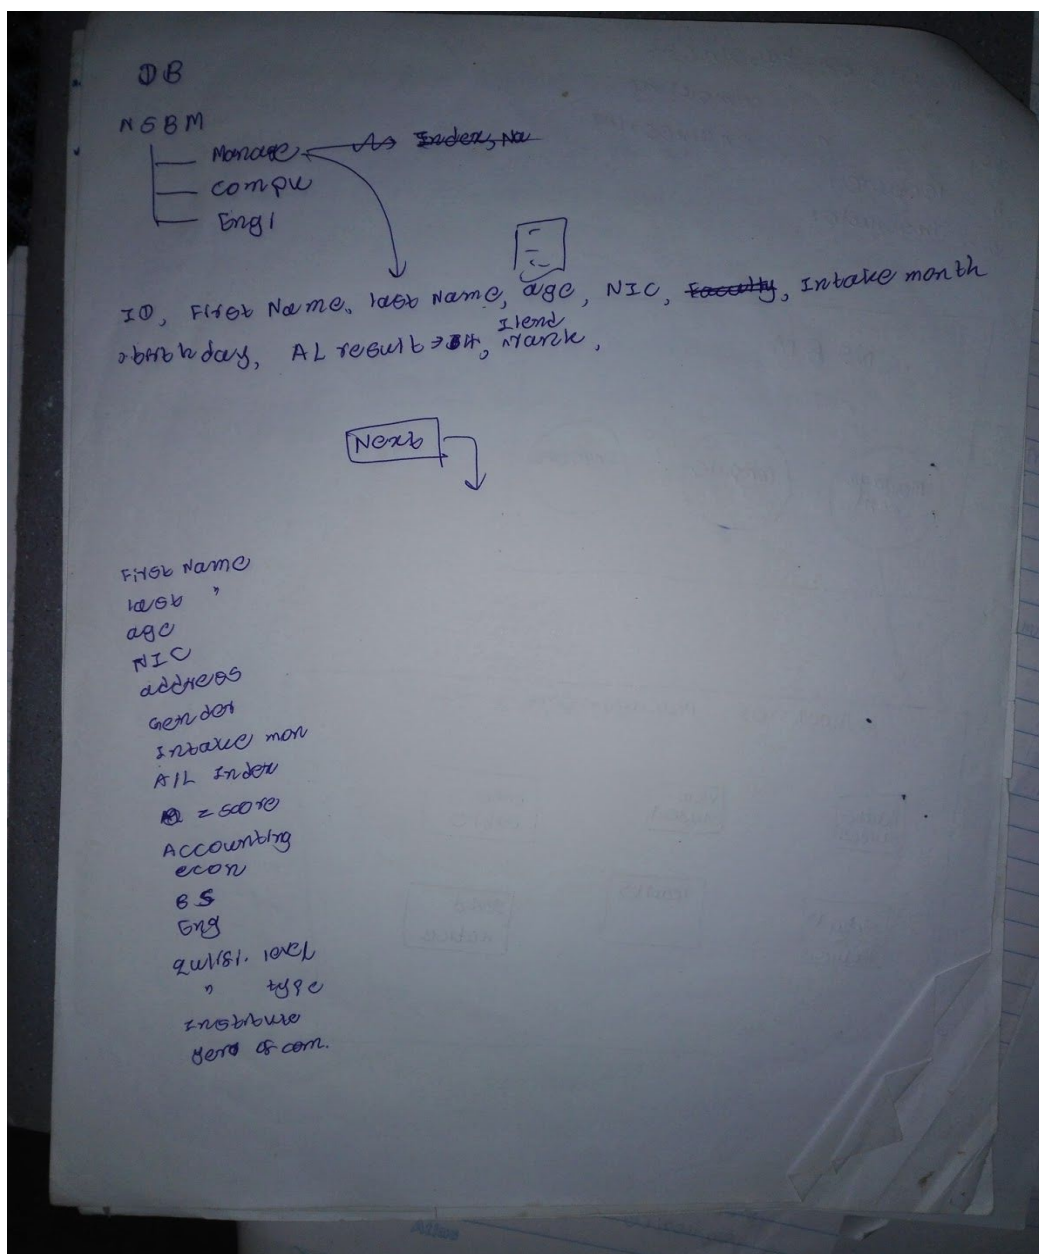 DB
NSBM
Manage
compu
Engi
ID, First Name, last Name, age, NIC, Faculty, Intake month
birth day, AL result, rank,
Next
First Name
last "
age
NIC
address
Gender
Intake mon
A/L Index
z score
Accounting
econ
BS
Eng
level
" type
Institute
of com.